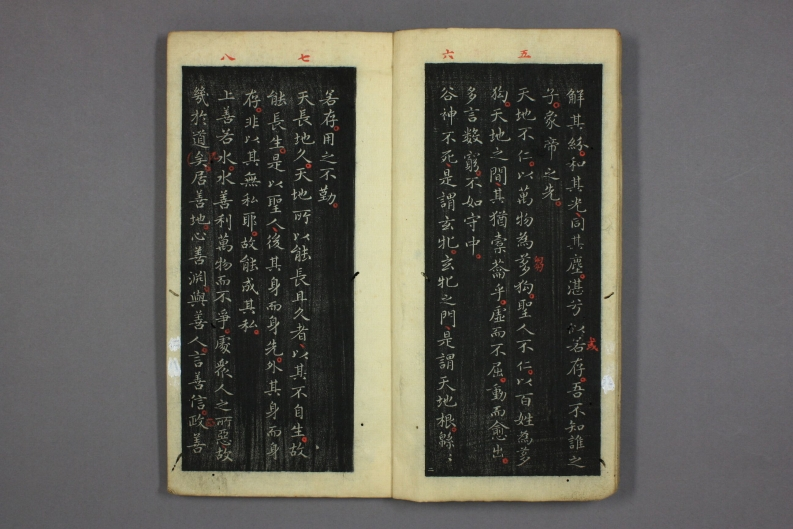 五
六
解其紛和其光同其塵湛兮以若存吾不知誰之
或
子象帝之先
天地不仁以萬物為芻狗聖人不仁以百姓為芻
狗天地之間其猶橐籥乎虛而不屈動而愈出
多言數窮不如守中
谷神不死是謂玄牝玄牝之門是謂天地根緜〻
七
八
若存用之不勤
天長地久天地所以能長且久者以其不自生故
能長生是以聖人後其身而身先外其身而身
存非以其無私耶故能成其私
上善若水水善利萬物而不爭處衆人之所惡故
幾於道矣居善地心善淵與善人言善信政善